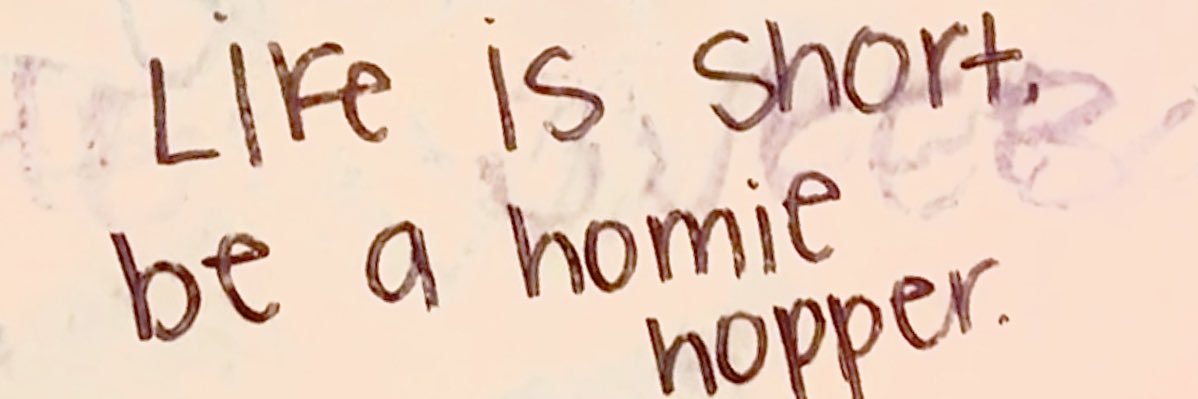 Life is short.
be a homie
hopper.